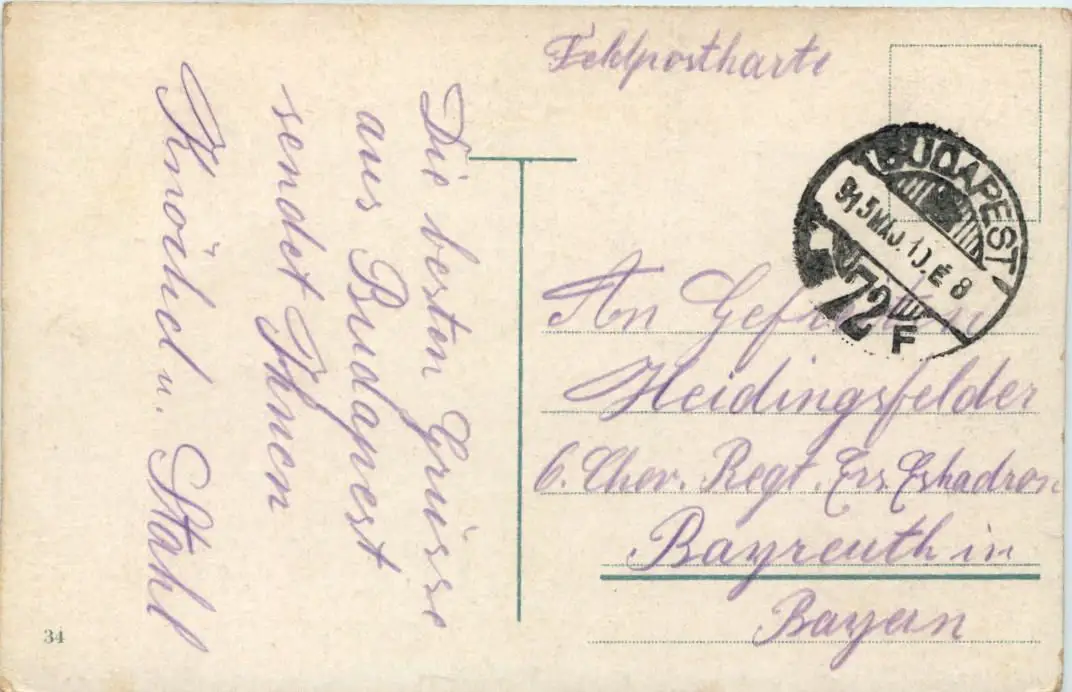 Feldpostkarte
BUDAPEST
915 MÁJ. 10. É 8
72 F
An Gefreiten
Heidingsfelder
6. Chev. Regt. Ers. Eskadron
Bayreuth in
Bayern
Die besten Grüsse
aus Budapest
sendet Ihnen
u. Stahl
34